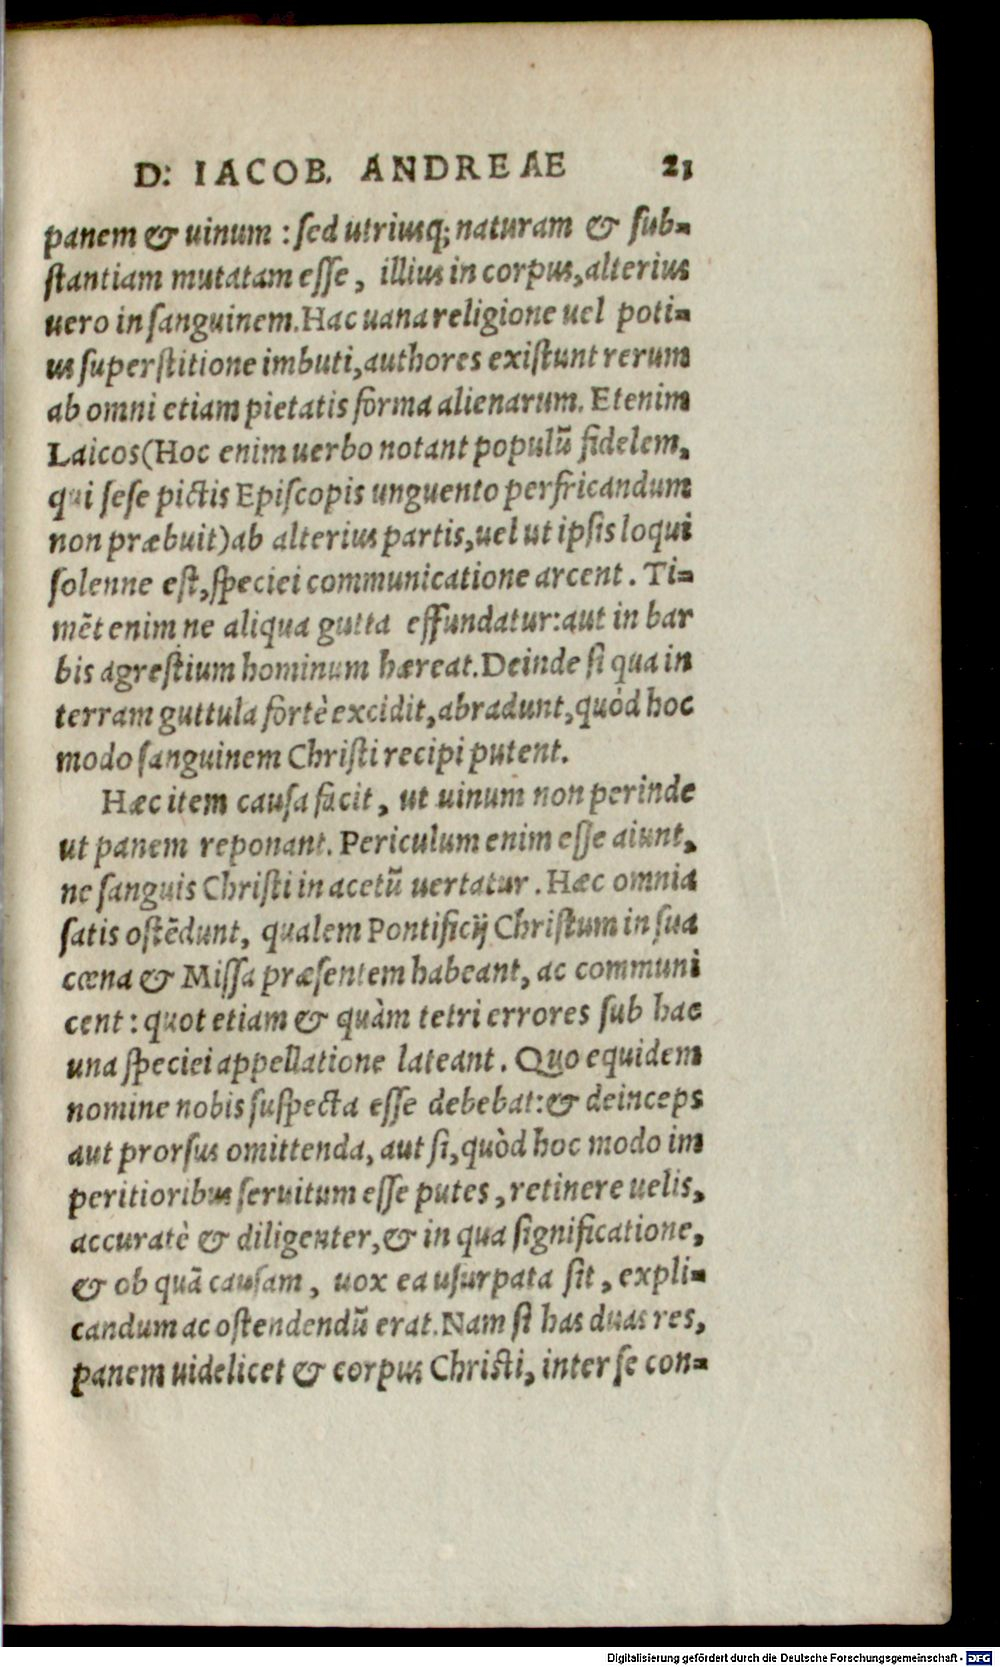 D: IACOB. ANDREAE 21
panem & uinum : sed utriusq; naturam & sub-
stantiam mutatam esse, illius in corpus, alterius
uero in sanguinem. Hac uana religione uel poti-
us superstitione imbuti, authores existunt rerum
ab omni etiam pietatis forma alienarum. Etenim
Laicos (Hoc enim uerbo notant populū fidelem,
qui sese pictis Episcopis unguento perfricandum
non præbuit) ab alterius partis, uel ut ipsis loqui
solenne est, speciei communicatione arcent. Ti-
mēt enim ne aliqua gutta effundatur: aut in bar
bis agrestium hominum hæreat. Deinde si qua in
terram guttula fortè excidit, abradunt, quòd hoc
modo sanguinem Christi recipi putent.
Hæc item causa facit, ut uinum non perinde
ut panem reponant. Periculum enim esse aiunt,
ne sanguis Christi in acetū uertatur. Hæc omnia
satis ostēdunt, qualem Pontificij Christum in sua
cœna & Missa præsentem habeant, ac communi
cent: quot etiam & quàm tetri errores sub hac
una speciei appellatione lateant. Quo equidem
nomine nobis suspecta esse debebat: & deinceps
aut prorsus omittenda, aut si, quòd hoc modo im
peritioribus seruitum esse putes, retinere uelis,
accuratè & diligenter, & in qua significatione,
& ob quā causam, uox ea usurpata sit, expli-
candum ac ostendendū erat. Nam si has duas res,
panem uidelicet & corpus Christi, inter se con-
Digitalisierung gefördert durch die Deutsche Forschungsgemeinschaft - DFG